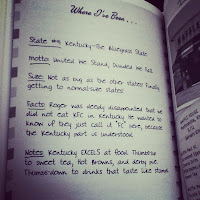 Where I've Been...
State #9 Kentucky-The Bluegrass State
Motto: United We Stand, Divided We Fall
Size: Not as big as the other states! Finally
getting to normalsize states!
Facts Roger was sorely disappointed that we
did not eat KFC in Kentucky. He wanted to
know if they just call it "FC" here, because
the Kentucky part is understood.
Notes: Kentucky EXCELS at food. Thumbs-up
to sweet tea, Hot Browns, and derby pie.
Thumbs-down to drinks that taste like